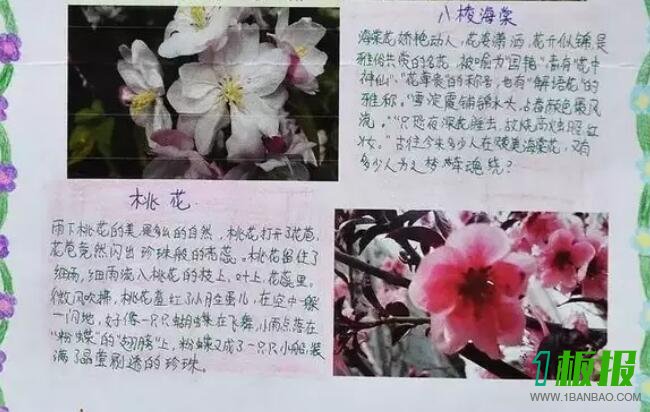 八棱海棠
海棠花娇艳动人,花姿潇洒,花开似锦是
雅俗共赏的名花,被喻为"国艳"素有"花中
神仙"、"花尊贵的称号,也有"解语花"的
雅称。"雪淀霞铺锦水头,占春颜色最风
流。""只恐夜深花睡去,故烧高烛照红
妆。"古往今来多少人在赞美海棠花,又有
多少人为之梦牵魂绕?
桃花
雨下桃花的美是多么的自然,桃花打开了花苞,
花苞竟然闪出珍珠般的雨蕊。桃花留住了
细雨,细雨流入桃花的枝上,叶上,花蕊里。
微风吹拂,桃花羞红了小脸蛋儿,在空中一躲
一闪地,好像一只只蝴蝶在飞舞,小雨点落在
"粉蝶"的"翅膀"上,粉蝶又成了一只只小船,装
满了晶莹剔透的珍珠。
1板报
WWW.1BANBAO.COM